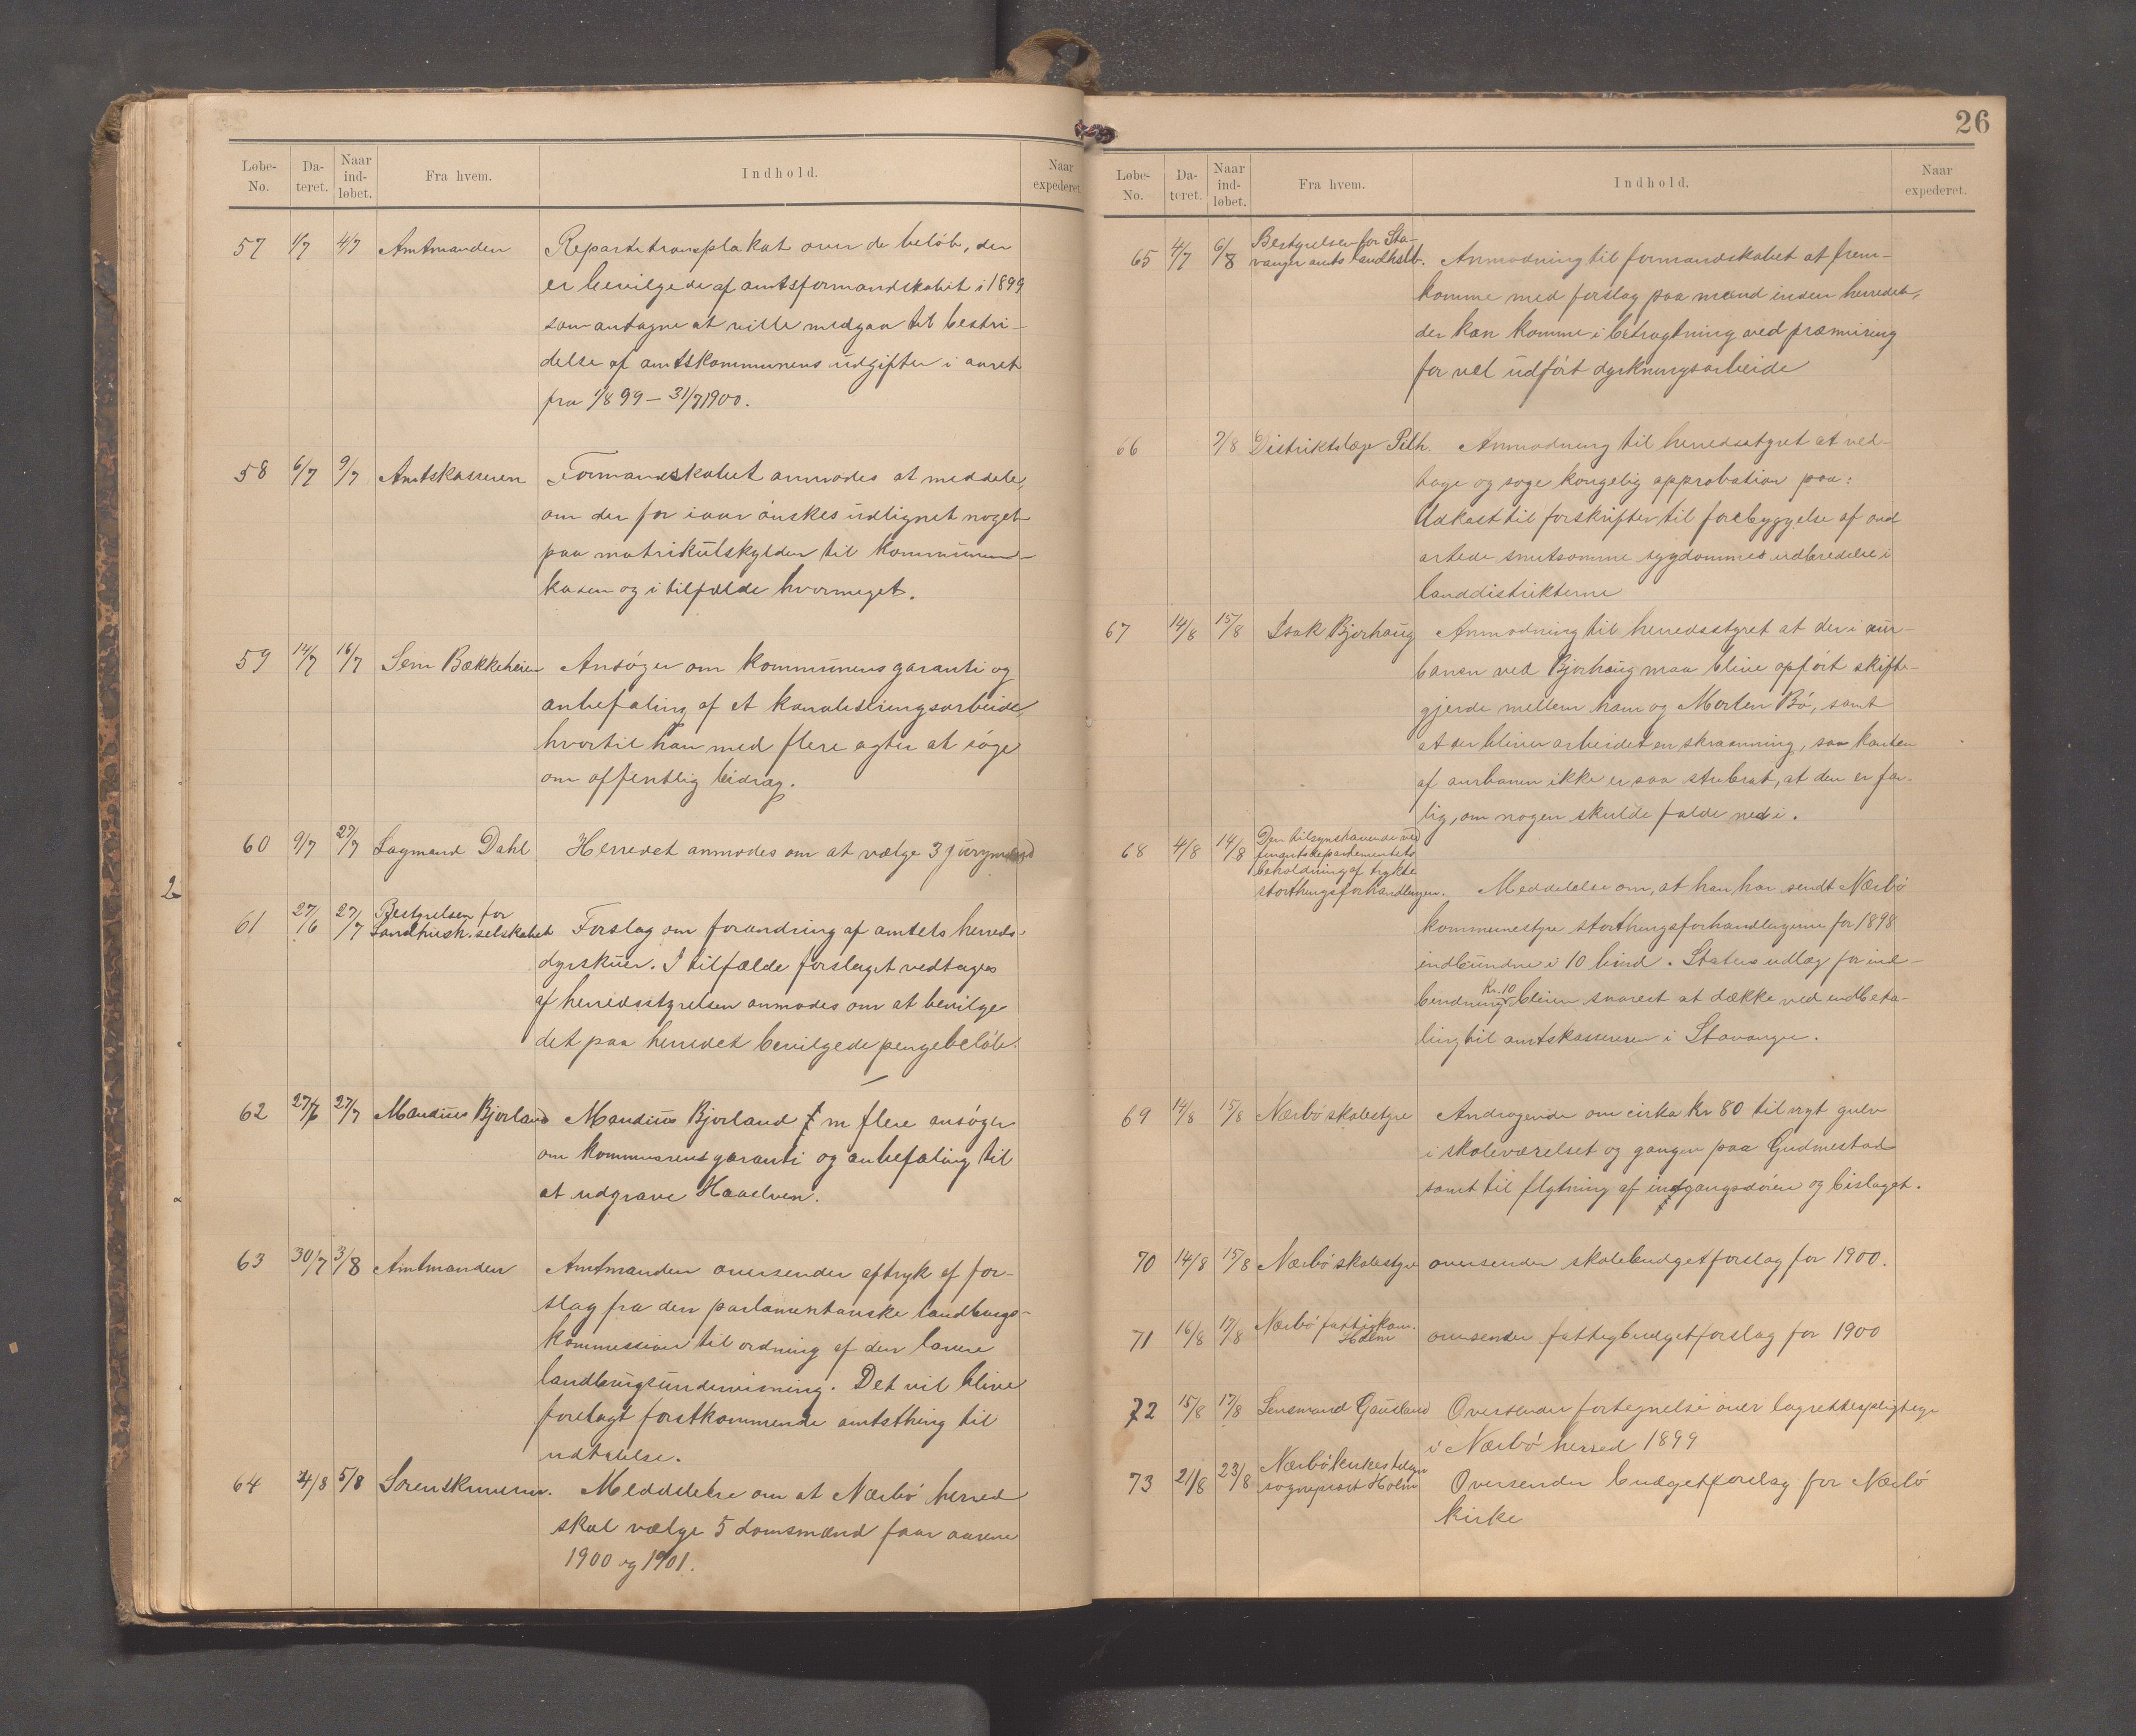 Løbe-No. Da-teret. Naar ind-løbet. Fra hvem. Indhold. Naar expederet.
57 1/7 4/7 Amtmanden Repartitionsplakat over de beløb, der
er bevilgede af amtsformandskabet i 1899
som antagne at ville medgaa til bestri-
delse af amtskommunens udgifter i aaret
fra 1/8 99 – 31/7 1900.
58 6/7 9/7 Amtskasseren Formandskabet anmodes at meddele,
om der for iaar ønskes udlignet noget
paa matrikulskylden til kommune-
kassen og i tilfælde hvormeget.
59 14/7 16/7 Sem Bækkeheien Ansøger om kommunens garanti og
anbefaling af et kanaliseringsarbeide,
hvortil han med flere agter at søge
om offentlig bidrag.
60 9/7 27/7 Lagmand Dahl Herredet anmodes om at vælge 3 jurymænd
61 27/6 27/7 Bestyrelsen for
Landhush. selskabet Forslag om forandring af amtets herreds-
dyrskuer. I tilfælde forslaget vedtages
af herredsstyrelsen anmodes om at bevilge
det paa herredet bevilgede pengebeløb.
62 27/6 27/7 Mandius Bjorland Mandius Bjorland m flere ansøger
om kommunens garanti og anbefaling til
at udgrave Haaelven.
63 30/7 3/8 Amtmanden Amtmanden oversender aftryk af for-
slag fra den parlamentariske landbrugs-
kommission til ordning af den lavere
landbrugsundervisning. Det vil blive
forelagt førstkommende amtsthing til
udtalelse.
64 4/8 5/8 Sorenskriveren. Meddelelse om at Nærbø herred
skal vælge 5 domsmænd for aarene
1900 og 1901.
26
Løbe-No. Da-teret. Naar ind-løbet. Fra hvem. Indhold. Naar expederet.
65 4/7 6/8 Bestyrelsen for Sta-
vanger amts landhslb. Anmodning til formandskabet at frem-
komme med forslag paa mænd inden herredet,
der kan komme i betragtning ved præmiering
for vel udført dyrkningsarbeide
66 7/8 Distriktslæge Anmodning til herredsstyret at ved-
tage og søge kongelig approbation paa:
Udkast til forskrifter til forebyggelse af ond
artede smitsomme sygdommes udbredelse i
landdistrikterne
67 14/8 15/8 Isak Bjorhaug Anmodning til herredsstyret at der i aur-
banen ved Bjorhaug maa blive opført skifte-
gjerde mellem ham og Morten Bø, samt
at der bliver arbeidet en skraaning, saa kanten
af aurbanen ikke er saa stubrat, at den er far-
lig, om nogen skulde falde ned i.
68 4/8 14/8 Den tilsynshavende ved
finantsdepartementets
beholdning af trykte
storthingsforhandlingen. Meddelelse om, at han har sendt Nærbø
kommunestyre storthingsforhandlingerne for 1898
indbundne i 10 bind. Statens udlæg for ind-
binding Kr. 10 bliver snarest at dække ved indbeta-
ling til amtskasseren i Stavanger.
69 14/8 15/8 Nærbø skolestyre Andragende om cirka kr 80 til nyt gulv
i skoleværelset og gangen paa Gudmestad
samt til flytning af indgangsdøren og bislaget.
70 14/8 15/8 Nærbø skolestyre oversender skolebudgetforslag for 1900.
71 16/8 17/8 Nærbø fattigkom.
Holm oversender fattigbudgetforslag for 1900
72 15/8 17/8 Lensmand Gausland Oversender fortegnelse over lagrettespligtige
i Nærbø herred 1899
73 21/8 23/8 Nærbø kirketilsyn
sogneprest Holm Oversender budgetforslag for Nærbø
kirke